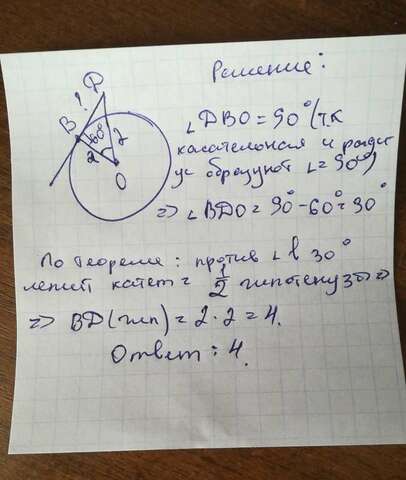 Решение:
D
?
B
60°
2
2
O
∠DBO = 90° (т.к
касательная и радиус
образуют ∠=90°)
=> ∠BDO = 90° - 60° = 30°
По теореме: против ∠ в 30°
лежит катет = 1/2 гипотенузы =>
=> BD (гип) = 2 · 2 = 4.
Ответ: 4.